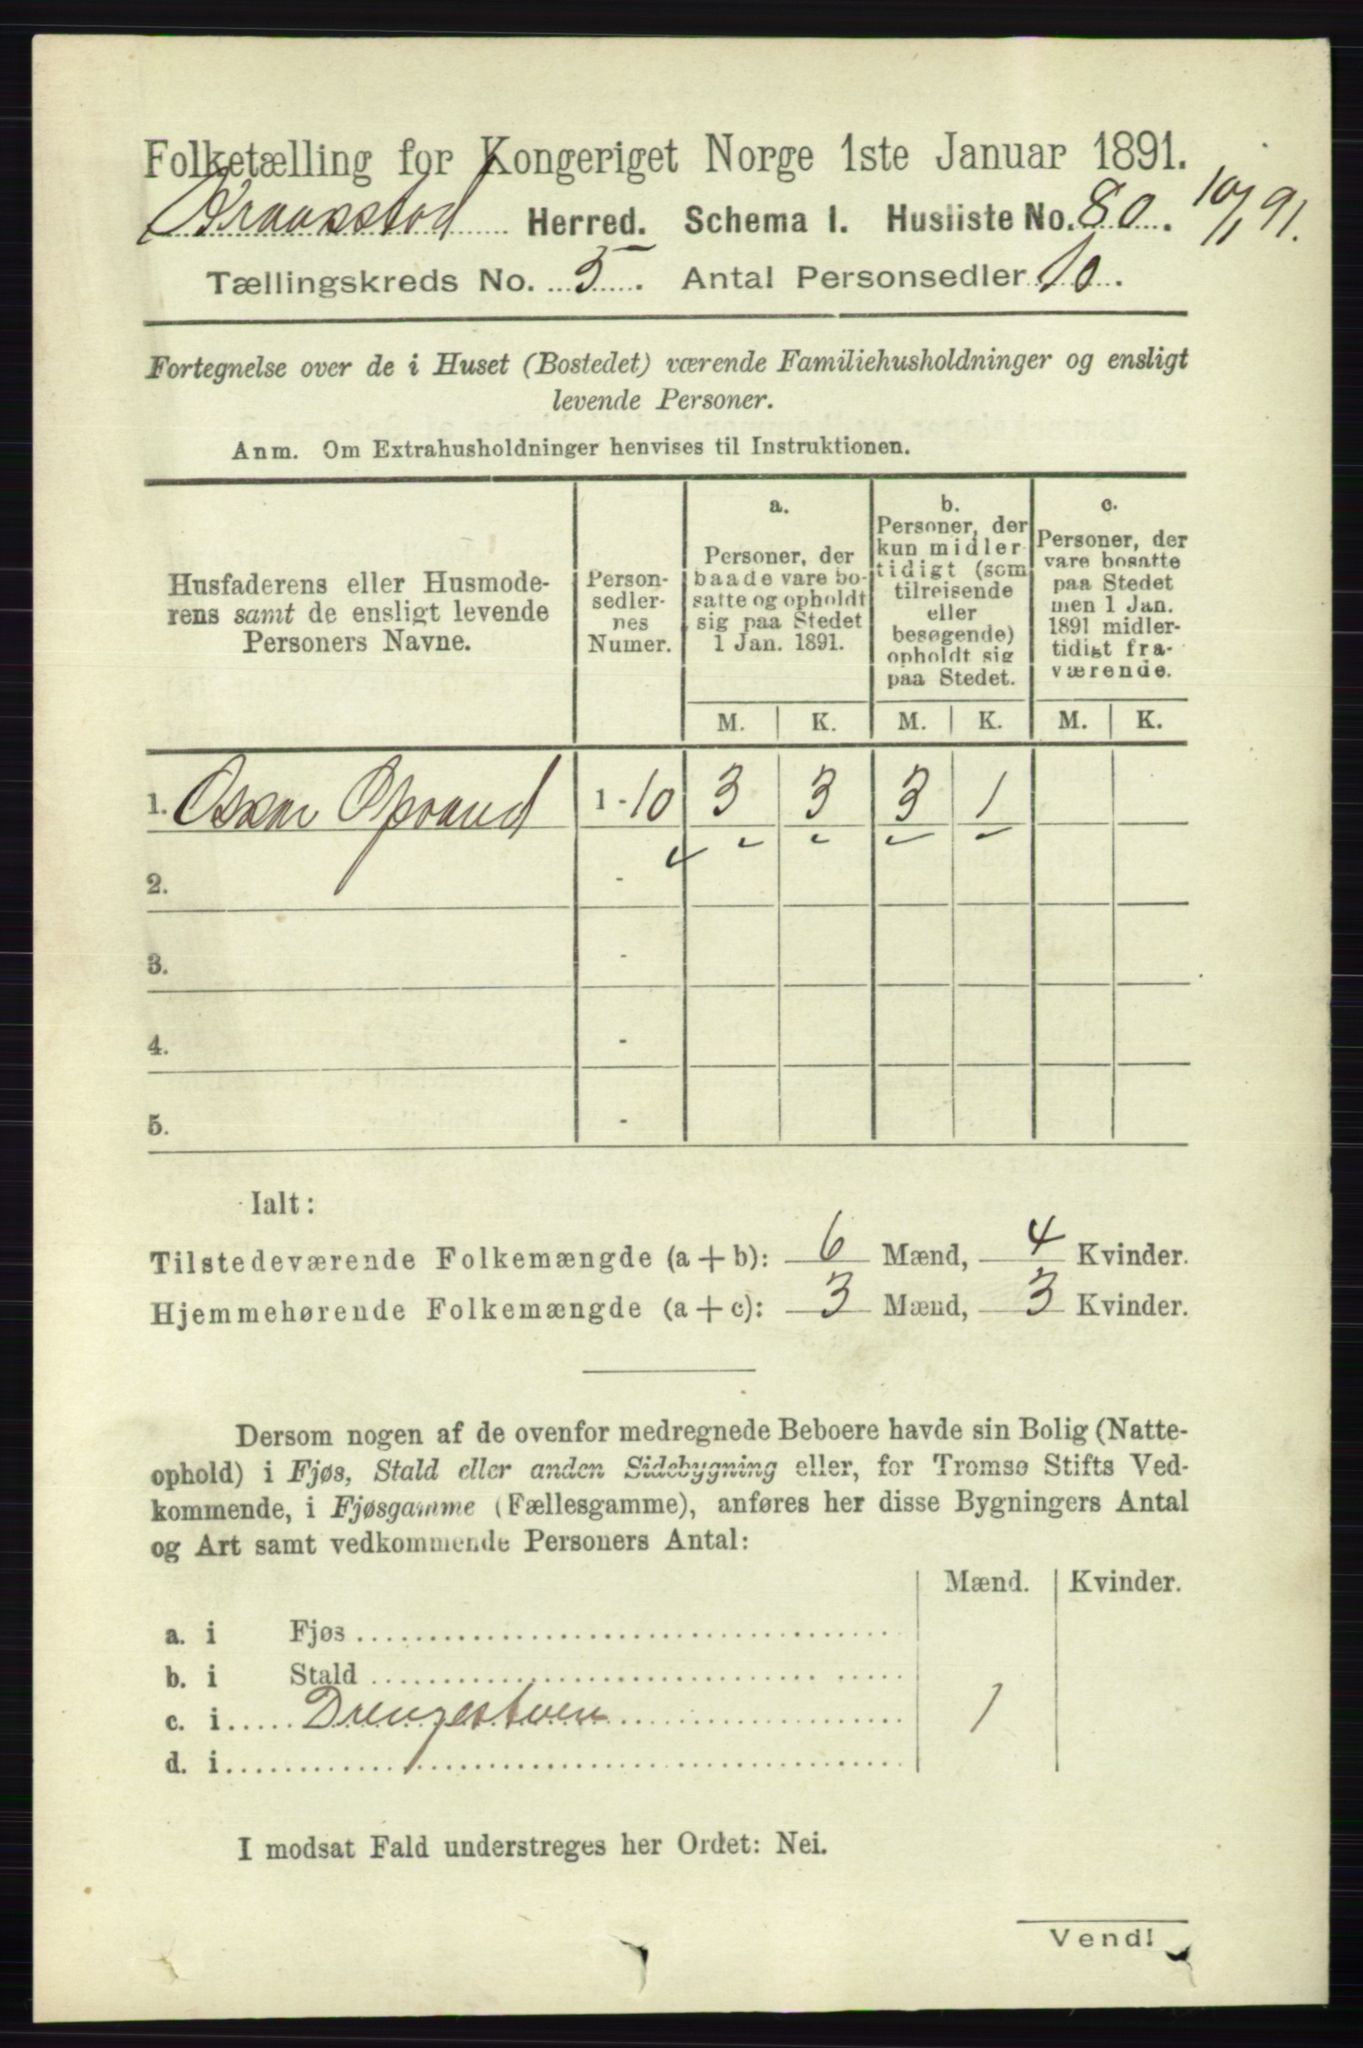 Folketælling for Kongeriget Norge 1ste Januar 1891.
Kraakstad Herred. Schema I. Husliste No. 80. 10/1 91.
Tællingskreds No. 5. Antal Personsedler 10.
Fortegnelse over de i Huset (Bostedet) værende Familiehusholdninger og ensligt
levende Personer.
Anm. Om Extrahusholdninger henvises til Instruktionen.
Husfaderens eller Husmode-
rens samt de ensligt levende
Personers Navne.
Person-
sedler-
nes
Numer.
a.
Personer, der
baade vare bo-
satte og opholdt
sig paa Stedet
1 Jan. 1891.
b.
Personer, der
kun midler-
tidigt (som
tilreisende
eller
besøgende)
opholdt sig
paa Stedet.
c.
Personer, der
vare bosatte
paa Stedet
men 1 Jan.
1891 midler-
tidigt fra-
værende.
M. K. M. K. M. K.
1. Oskar 1 - 10 3 3 3 1
4
2. -
3. -
4. -
5. -
Ialt:
Tilstedeværende Folkemængde (a + b): 6 Mænd, 4 Kvinder.
Hjemmehørende Folkemængde (a + c): 3 Mænd, 3 Kvinder.
Dersom nogen af de ovenfor medregnede Beboere havde sin Bolig (Natte-
ophold) i Fjøs, Stald eller anden Sidebygning eller, for Tromsø Stifts Ved-
kommende, i Fjøsgamme (Fællesgamme), anføres her disse Bygningers Antal
og Art samt vedkommende Personers Antal:
Mænd. Kvinder.
a. i Fjøs
b. i Stald
c. i Drengestuen 1
d. i
I modsat Fald understreges her Ordet: Nei.
Vend!